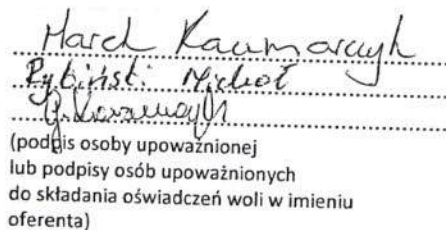 Marek Kaczmarczyk
Rybiński Michał
(podpis osoby upoważnionej
lub podpisy osób upoważnionych
do składania oświadczeń woli w imieniu
oferenta)